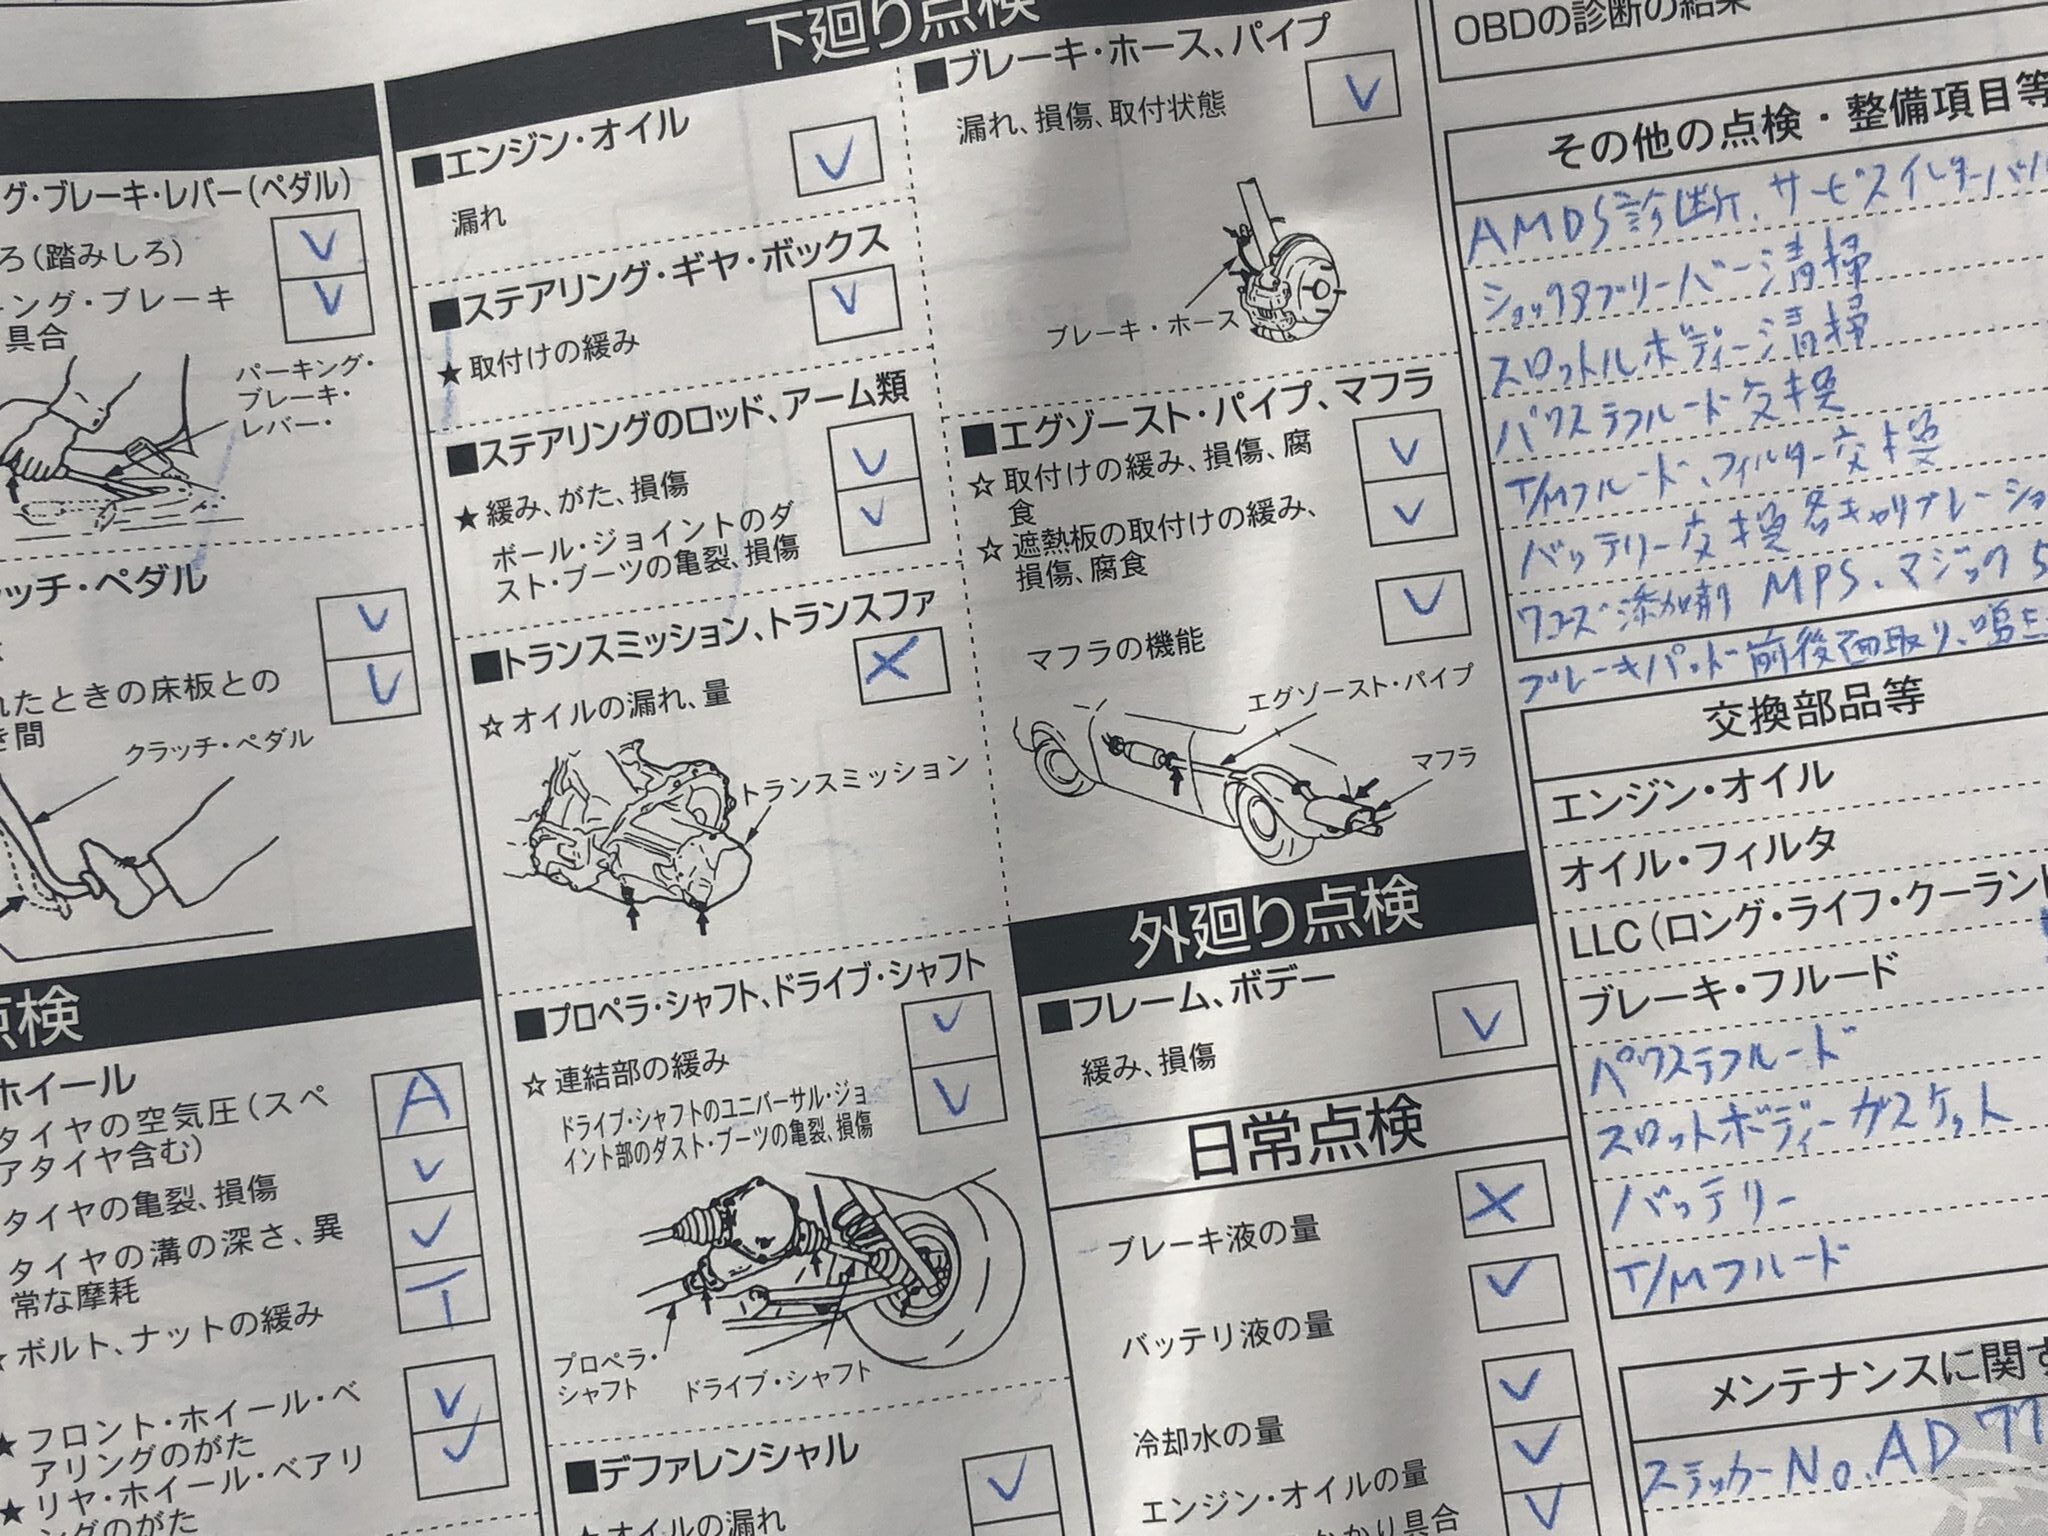 グ・ブレーキ・レバー(ペダル)
ろ(踏みしろ)
ング・ブレーキ
具合
パーキング・
ブレーキ・
レバー・
ッチ・ペダル
れたときの床板との
間
クラッチ・ペダル
点検
ホイール
タイヤの空気圧(スペ
アタイヤ含む)
A
タイヤの亀裂、損傷
タイヤの溝の深さ、異
常な摩耗
ボルト、ナットの緩み
T
★フロント・ホイール・ベ
アリングのがた
★リヤ・ホイール・ベアリ
ングのがた
下廻り点検
■エンジン・オイル
漏れ
■ステアリング・ギヤ・ボックス
★取付けの緩み
■ステアリングのロッド、アーム類
★緩み、がた、損傷
ボール・ジョイントのダ
スト・ブーツの亀裂、損傷
■トランスミッション、トランスファ
☆オイルの漏れ、量
トランスミッション
■プロペラ・シャフト、ドライブ・シャフト
☆連結部の緩み
ドライブ・シャフトのユニバーサル・ジョ
イント部のダスト・ブーツの亀裂、損傷
プロペラ・
シャフト
ドライブ・シャフト
■デファレンシャル
★オイルの漏れ
■ブレーキ・ホース、パイプ
漏れ、損傷、取付状態
ブレーキ・ホース
■エグゾースト・パイプ、マフラ
☆取付けの緩み、損傷、腐
食
☆遮熱板の取付けの緩み、
損傷、腐食
マフラの機能
エグゾースト・パイプ
マフラ
外廻り点検
■フレーム、ボデー
緩み、損傷
日常点検
ブレーキ液の量
バッテリ液の量
冷却水の量
エンジン・オイルの量
かかり具合
OBDの診断の結果
その他の点検・整備項目等
AMDS診断、サービスインターバル
ショックアブソーバー清掃
スロットルボディー清掃
パワステフルード交換
T/Mフルード、フィルター交換
バッテリー交換 各キャリブレーショ
ワコーズ添加剤 MPS、マジック5
ブレーキパッド前後面取り、鳴き
交換部品等
エンジン・オイル
オイル・フィルタ
LLC(ロング・ライフ・クーラント
ブレーキ・フルード
パワステフルード
スロットボディーガスケット
バッテリー
T/Mフルード
メンテナンスに関す
ステッカーNo.AD77